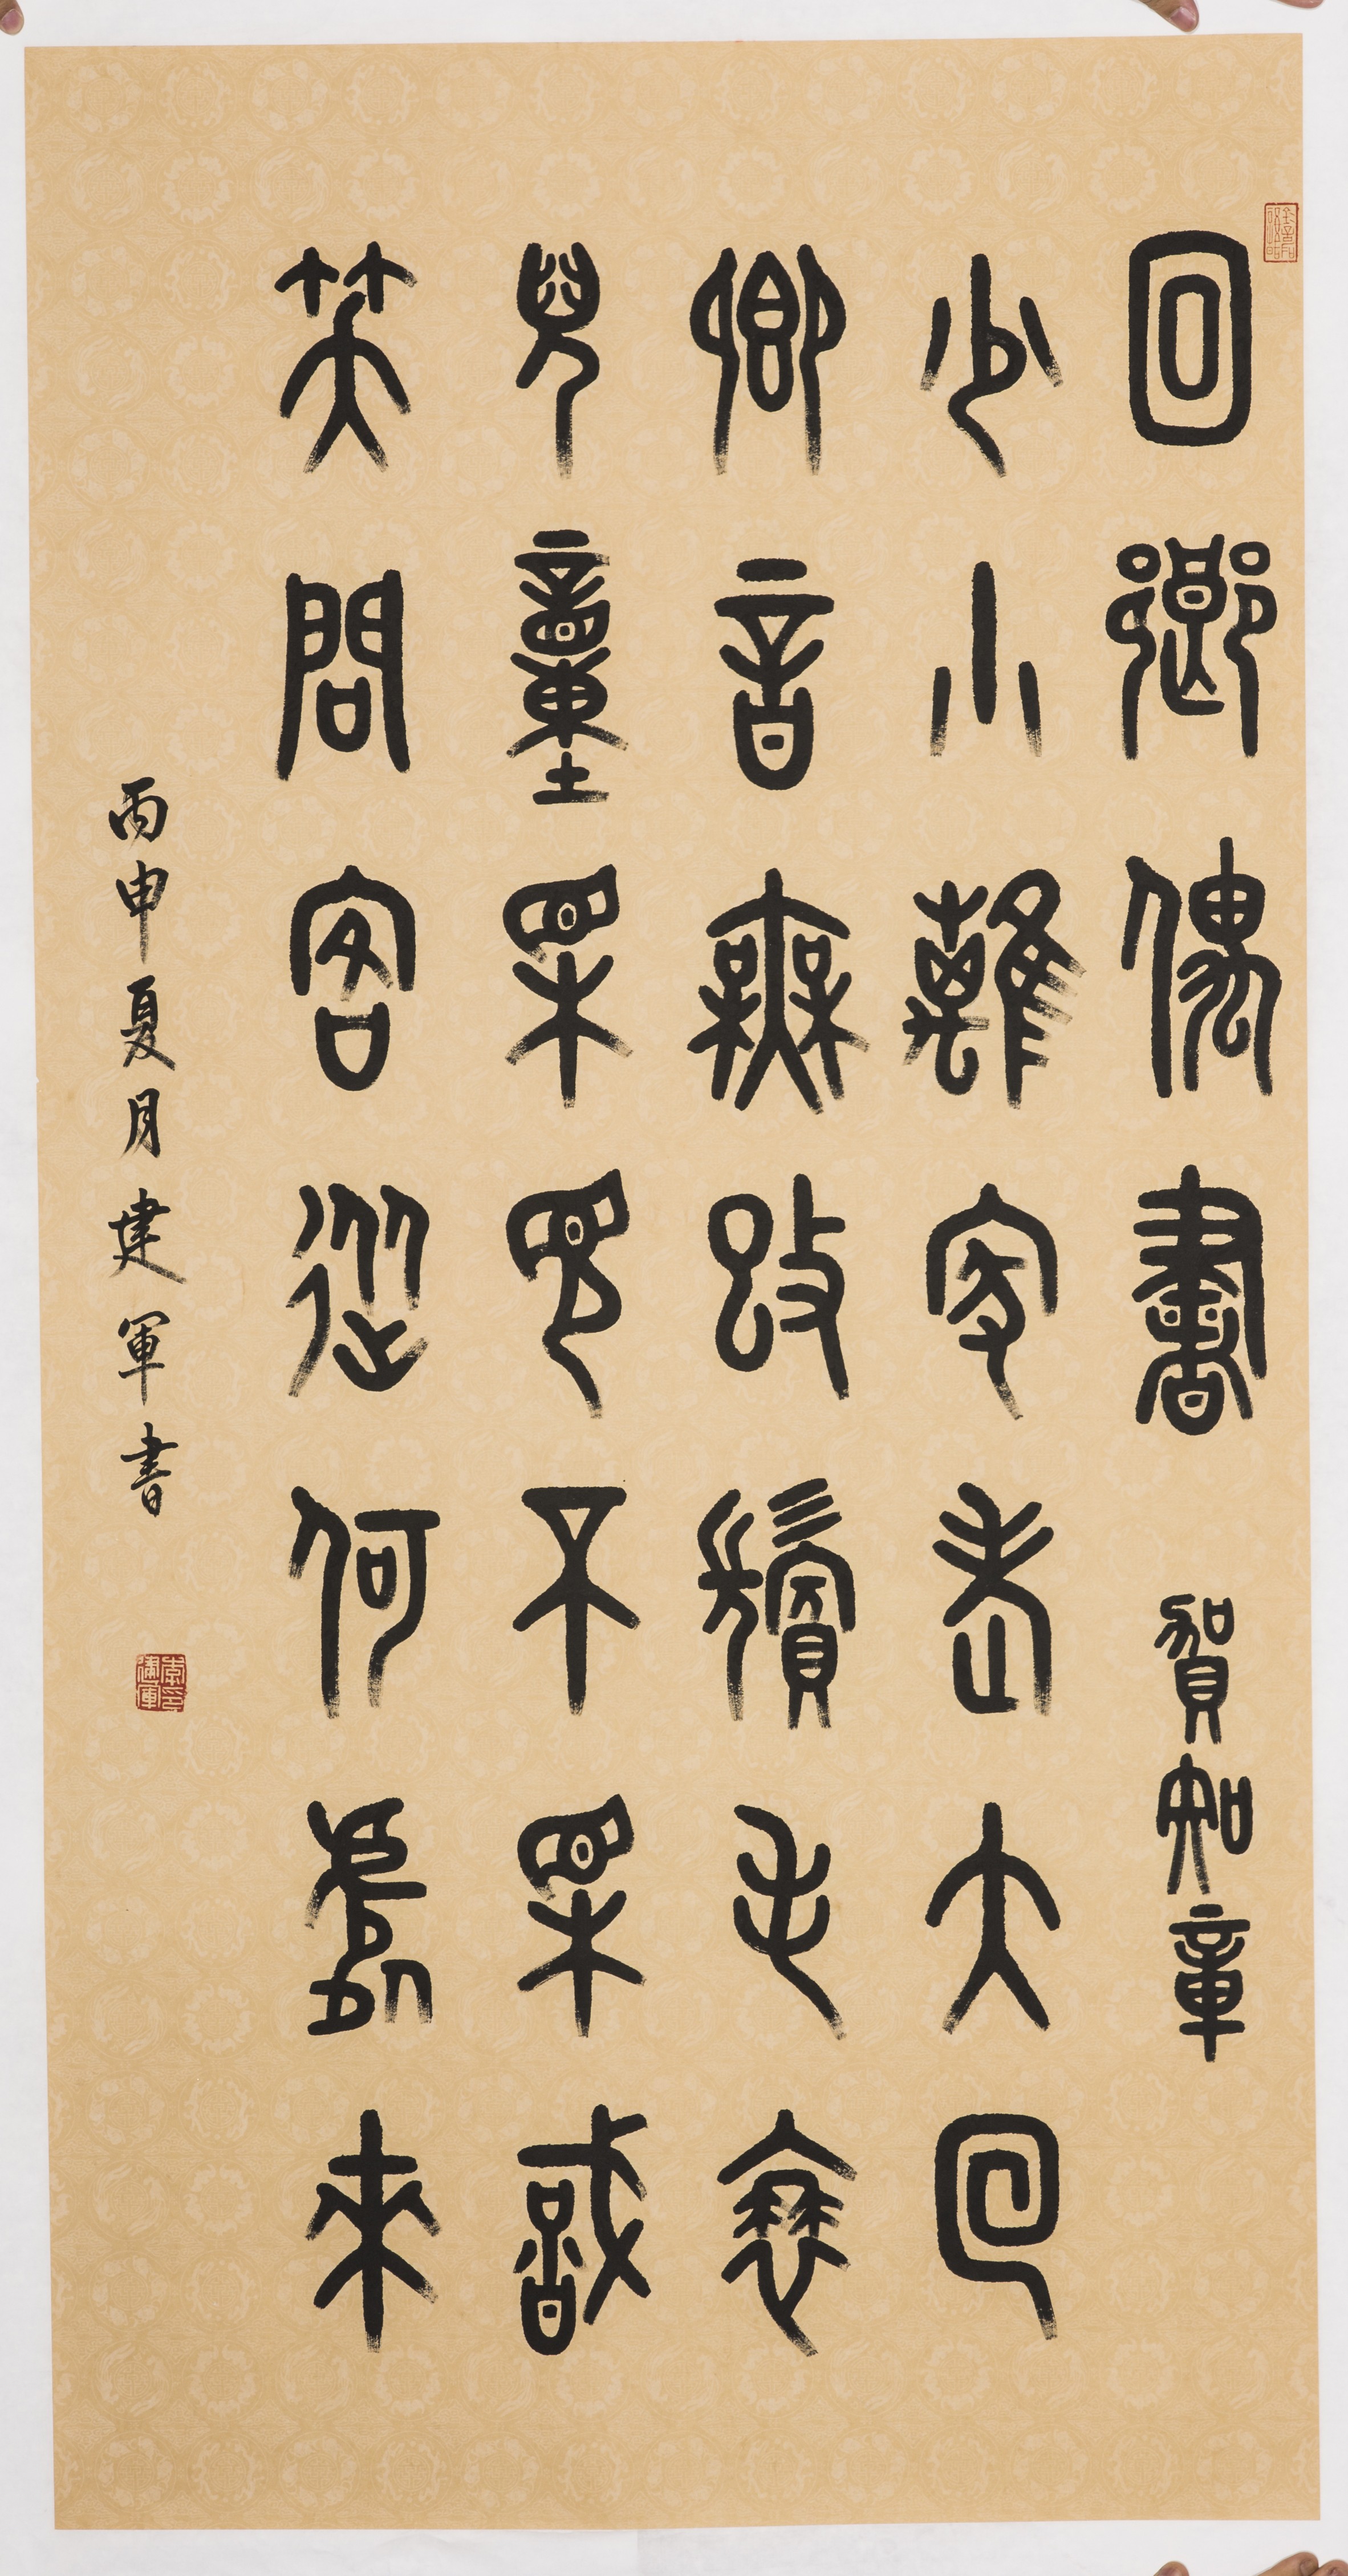 回鄉偶書 賀知章
少小離家老大回
鄉音無改鬢毛衰
兒童相見不相識
笑問客從何處來
丙申夏月建軍書